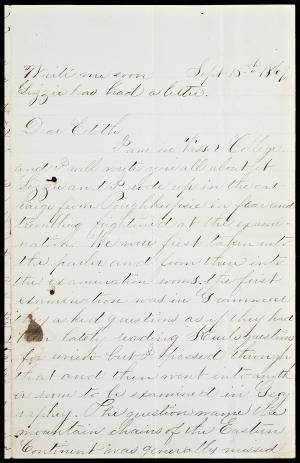 Write me soon Sept 15th 1869
Lizzie has had a letter.
Dear Edith
I am in Vassar College
and I will write you all about it
Lizzie and I rode up in the car
riage from Poughkeepsie in fear and
trembling frightened at the exami-
nation. We were first taken into
the parlor and from there into
the examination room. the first
examination was in Grammar
they asked questions as if they had
been lately reading Kerl's question
for review but I passed through
that and then went into anoth
er room to be examined in Geog
raphy. The question name the
mountain chains of the Eastern
Continent was generally missed